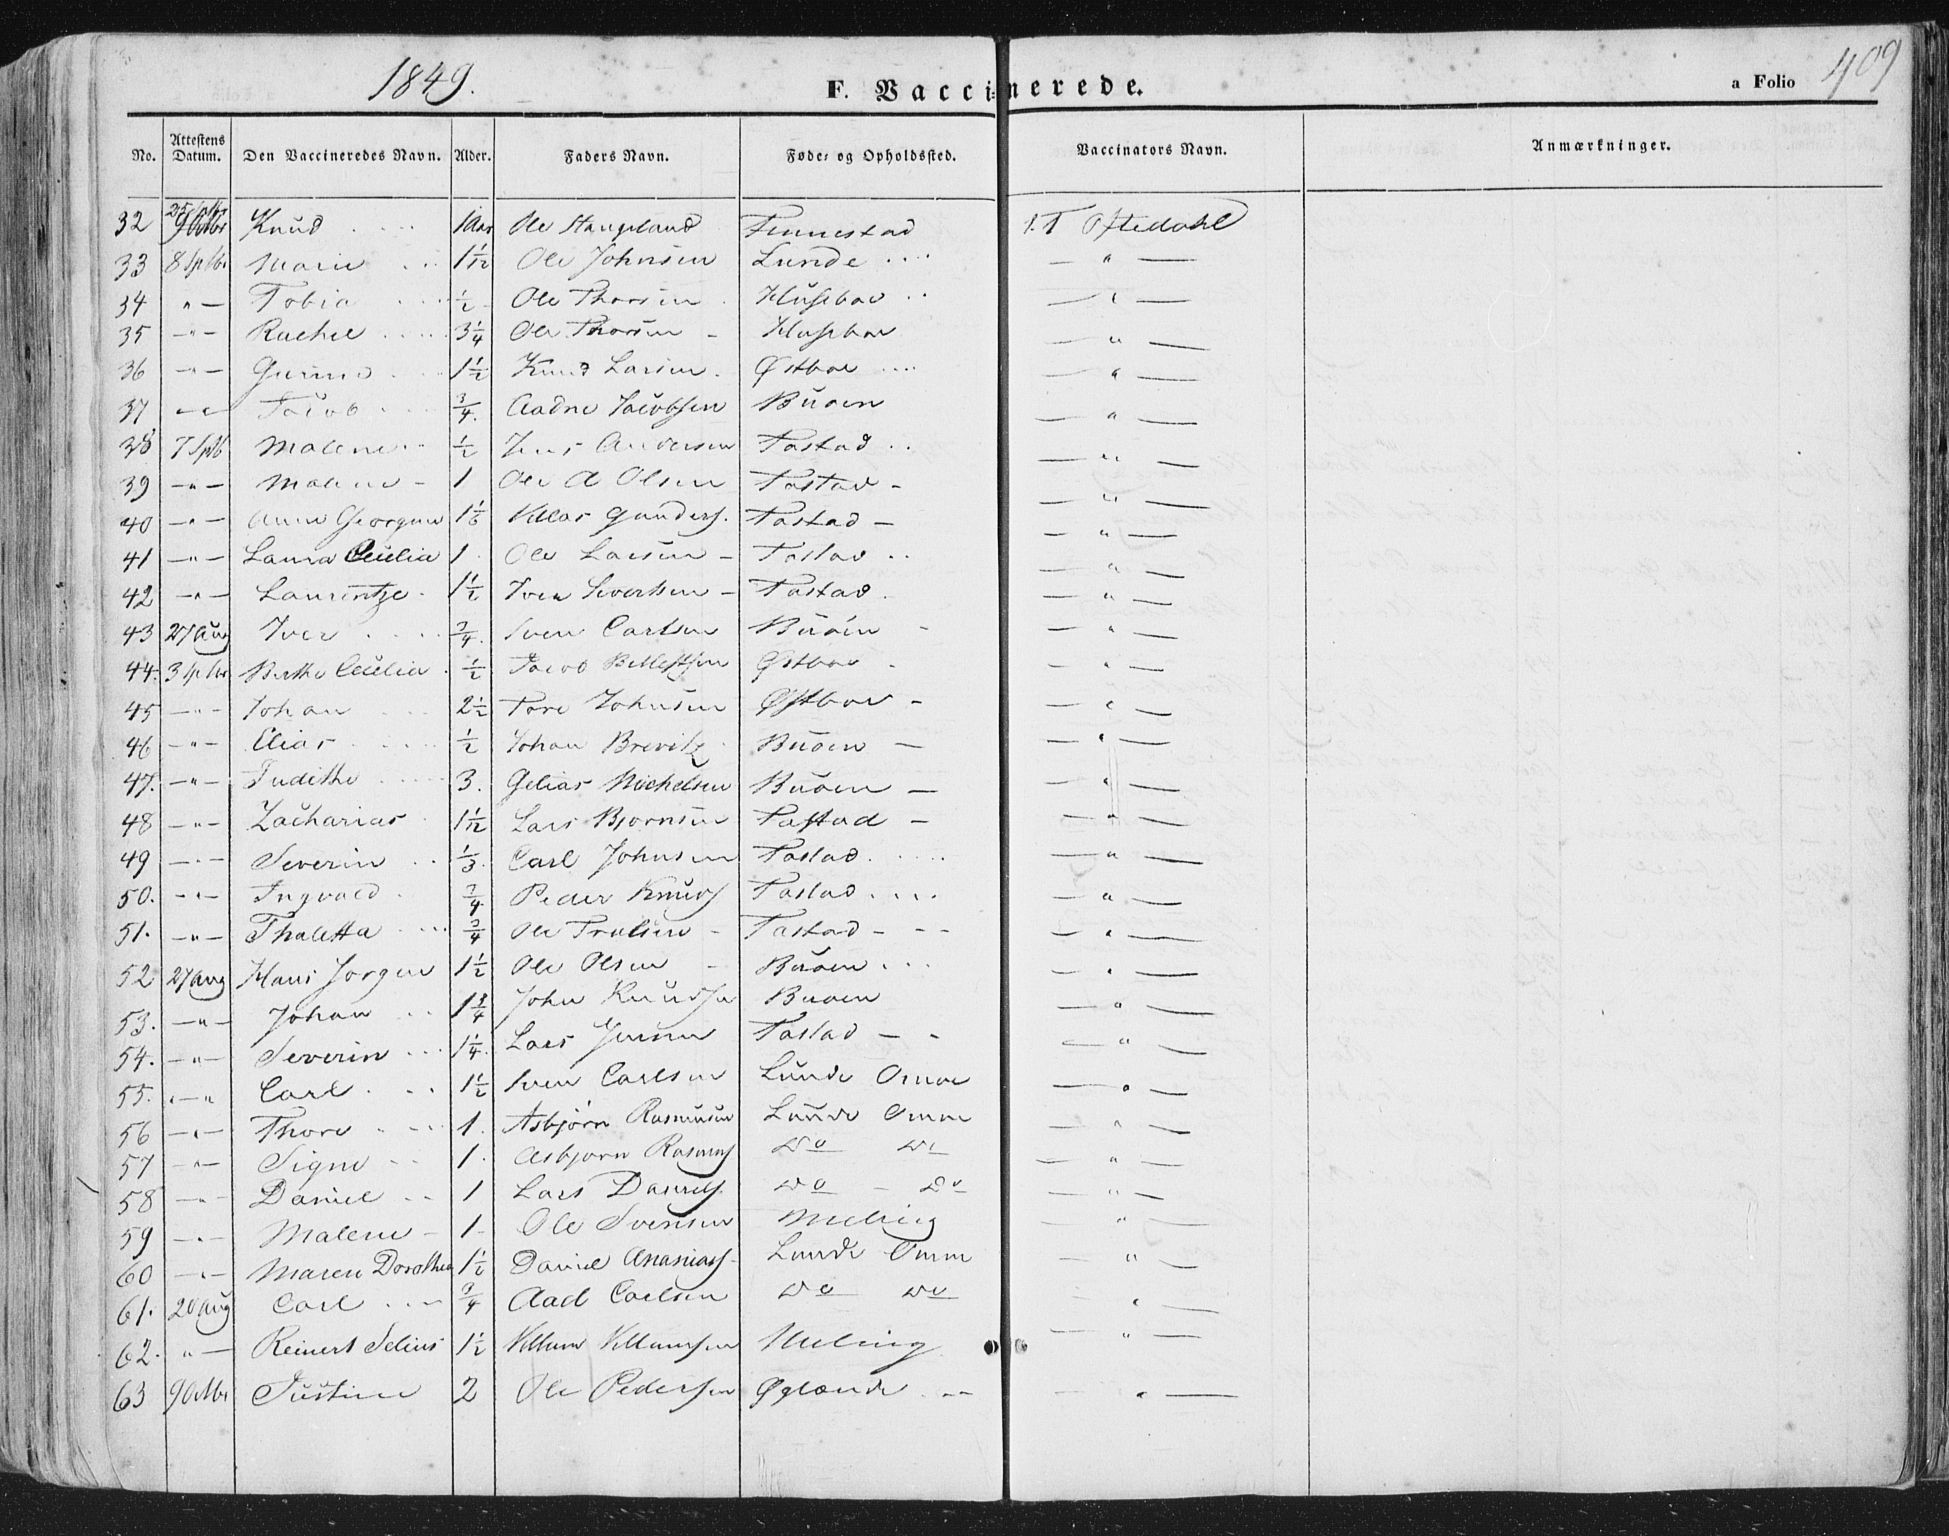 1849. F. Vaccinerede. a Folio 409
No. Attestens Datum. Den Vaccineredes Navn. Alder. Faders Navn. Føde- og Opholdssted. Vaccinators Navn. Anmærkninger.
32 9 Octbr Knud .... 1 Aar Ole Stangeland Finnestad T. Oftedahl
33 8 Sptbr Marie ... 1 1/12 Ole Johnsen Lunde .... — " —
34 " — Tobia .... 1/2 Ole Thorsen . Huseboe .. — " —
35 — " — Rachel .... 3 1/4 Ole Thorsen - Huseboe — " —
36 — " — Gurine ... 1 1/2 Knud Larsen . Østboe .... — " —
37 — " — Jacob .... 3/4. Aadne Jacobsen Buøen — " —
38 7 Sptb Malene .. 1/2 Jens Andersen Tastad .. — " —
39 — " — Malene - 1 Ole A Olsen Tastad - — " —
40 — " — Anne Georgine 1 1/6 Gunders. Tastad — — " —
41 — " — Laura Cecilia 1. Ole Larsen - Tastad .. — " —
42 — " — Laurentze . 1 1/2 Iver Sivertsen - Tastad . — " —
43 27 Aug Iver .... 3/4. Sven Carlsen Buøen - — " —
44. 3 Sptbr Berthe Cecilia . 1/2 Jacob Østboe . — " —
45 — " — Johan ... 2 1/2 Tore Johnsen Østboe - — " —
46 — " — Elias .... 1/2 Johan Brevik . Buøen — — " —
47. — " — Judithe .... 3. Gelias Michelsen Buøen — — " —
48 — " — Zacharias . 1 1/12 Lars Bjørnsen Tastad — — " —
49 — " — Severin .. 1/3. Carl Johnsen Tastad ..... — " —
50. — " — Ingvald . 3/4 Peder Knuds Tastad .... — " —
51. — " — Thaletta ... 3/4 Ole Trulsen - Tastad - - - — " —
52 27 Aug Hans Jørgen 1 1/2 Ole Olsen - Buøen ... — " —
53. — " — Johan .. 1 3/4 John Knudsen Buøen — " —
54. — " — Severin ... 1 1/4. Lars Jensen Tastad — - — " —
55. — " Carl ... 1 1/2 Sven Carlsen Lunde Omoe — " —
56 — " — Thore .... 1. Asbjørn Rasmusen Lunde Omme — " —
57 — " — Signe .. 1. Asbjørn Rasmus Do Do — " —
58 — " Daniel .. 1 Lars Daniels. Do — Do — " —
59 — " — Malene - 1 - Ole Svensen Meling — " —
60 — " — Maren Dorothea 1 1/2 Daniel Ananias - Lunde Omm — " —
61. 20 Aug Carl ... 3/4 Aad Carlsen Do Do — " —
62. " — Reinert Selius 1 1/2 Villum Villumsen Meling — " —
63 9 Octbr Justine 2 Ole Pedersen Øglænde .. — " —